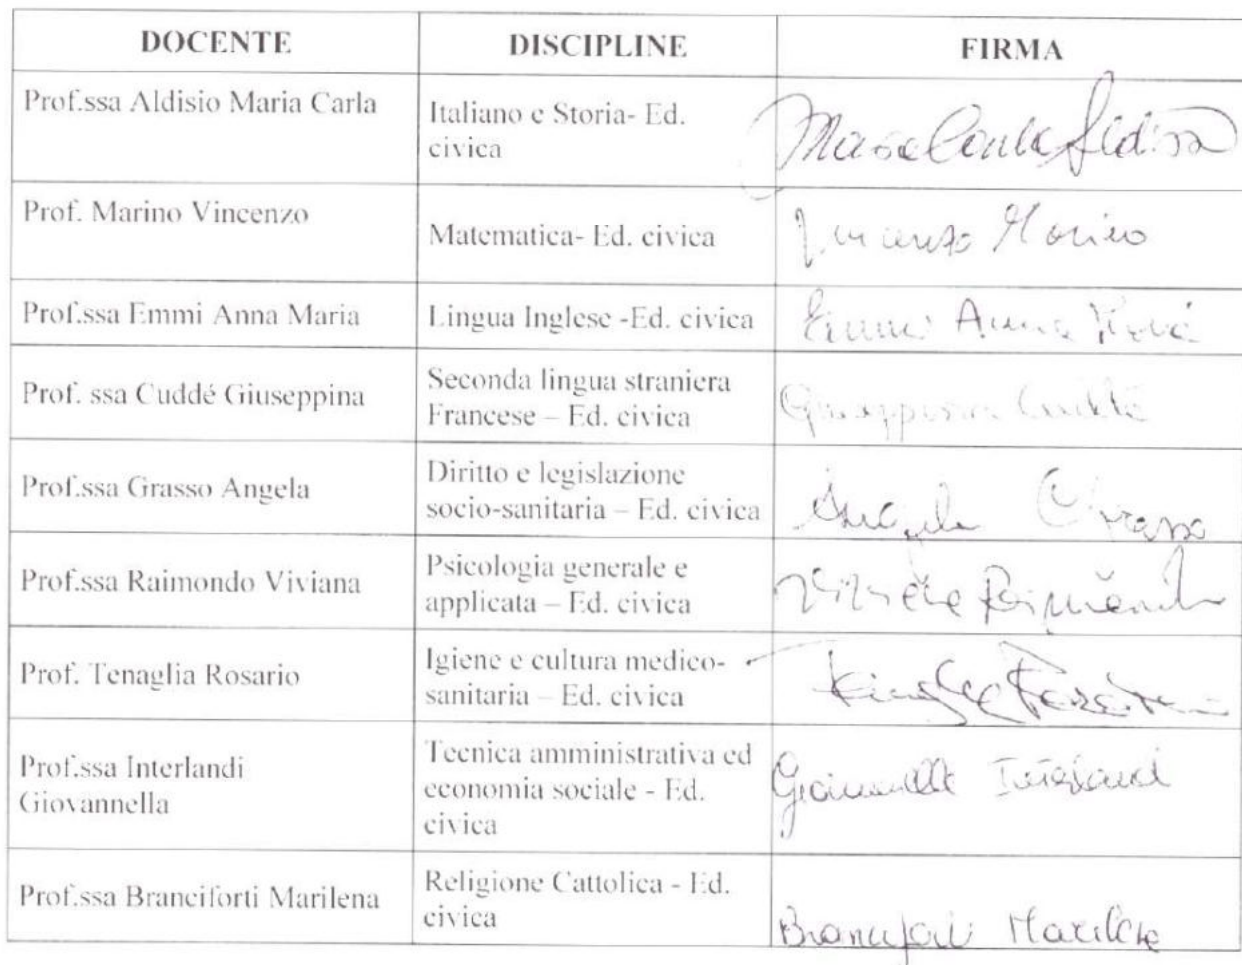 DOCENTE DISCIPLINE FIRMA
Prof.ssa Aldisio Maria Carla
Italiano e Storia- Ed.
civica
Maria Carla Aldisio
Prof. Marino Vincenzo
Matematica- Ed. civica
Vincenzo Marino
Prof.ssa Emmi Anna Maria
Lingua Inglese -Ed. civica
Emmi Anna Maria
Prof. ssa Cuddé Giuseppina
Seconda lingua straniera
Francese – Ed. civica
Giuseppina Cuddé
Prof.ssa Grasso Angela
Diritto e legislazione
socio-sanitaria – Ed. civica
Angela Grasso
Prof.ssa Raimondo Viviana
Psicologia generale e
applicata – Ed. civica
Viviana Raimondo
Prof. Tenaglia Rosario
Igiene e cultura medico-
sanitaria – Ed. civica
Prof.ssa Interlandi
Giovannella
Tecnica amministrativa ed
economia sociale - Ed.
civica
Giovannella Interlandi
Prof.ssa Branciforti Marilena
Religione Cattolica - Ed.
civica
Branciforti Marilena